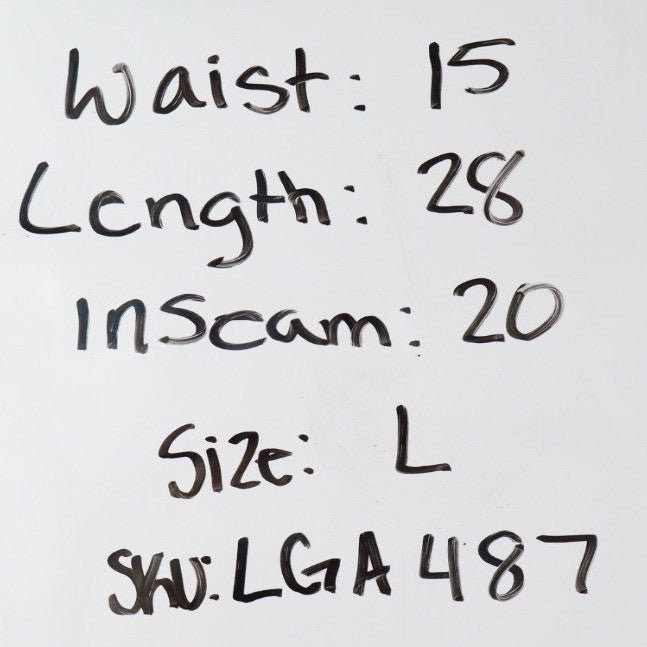 Waist: 15
Length: 28
Inseam: 20
Size: L
SKU: LGA487